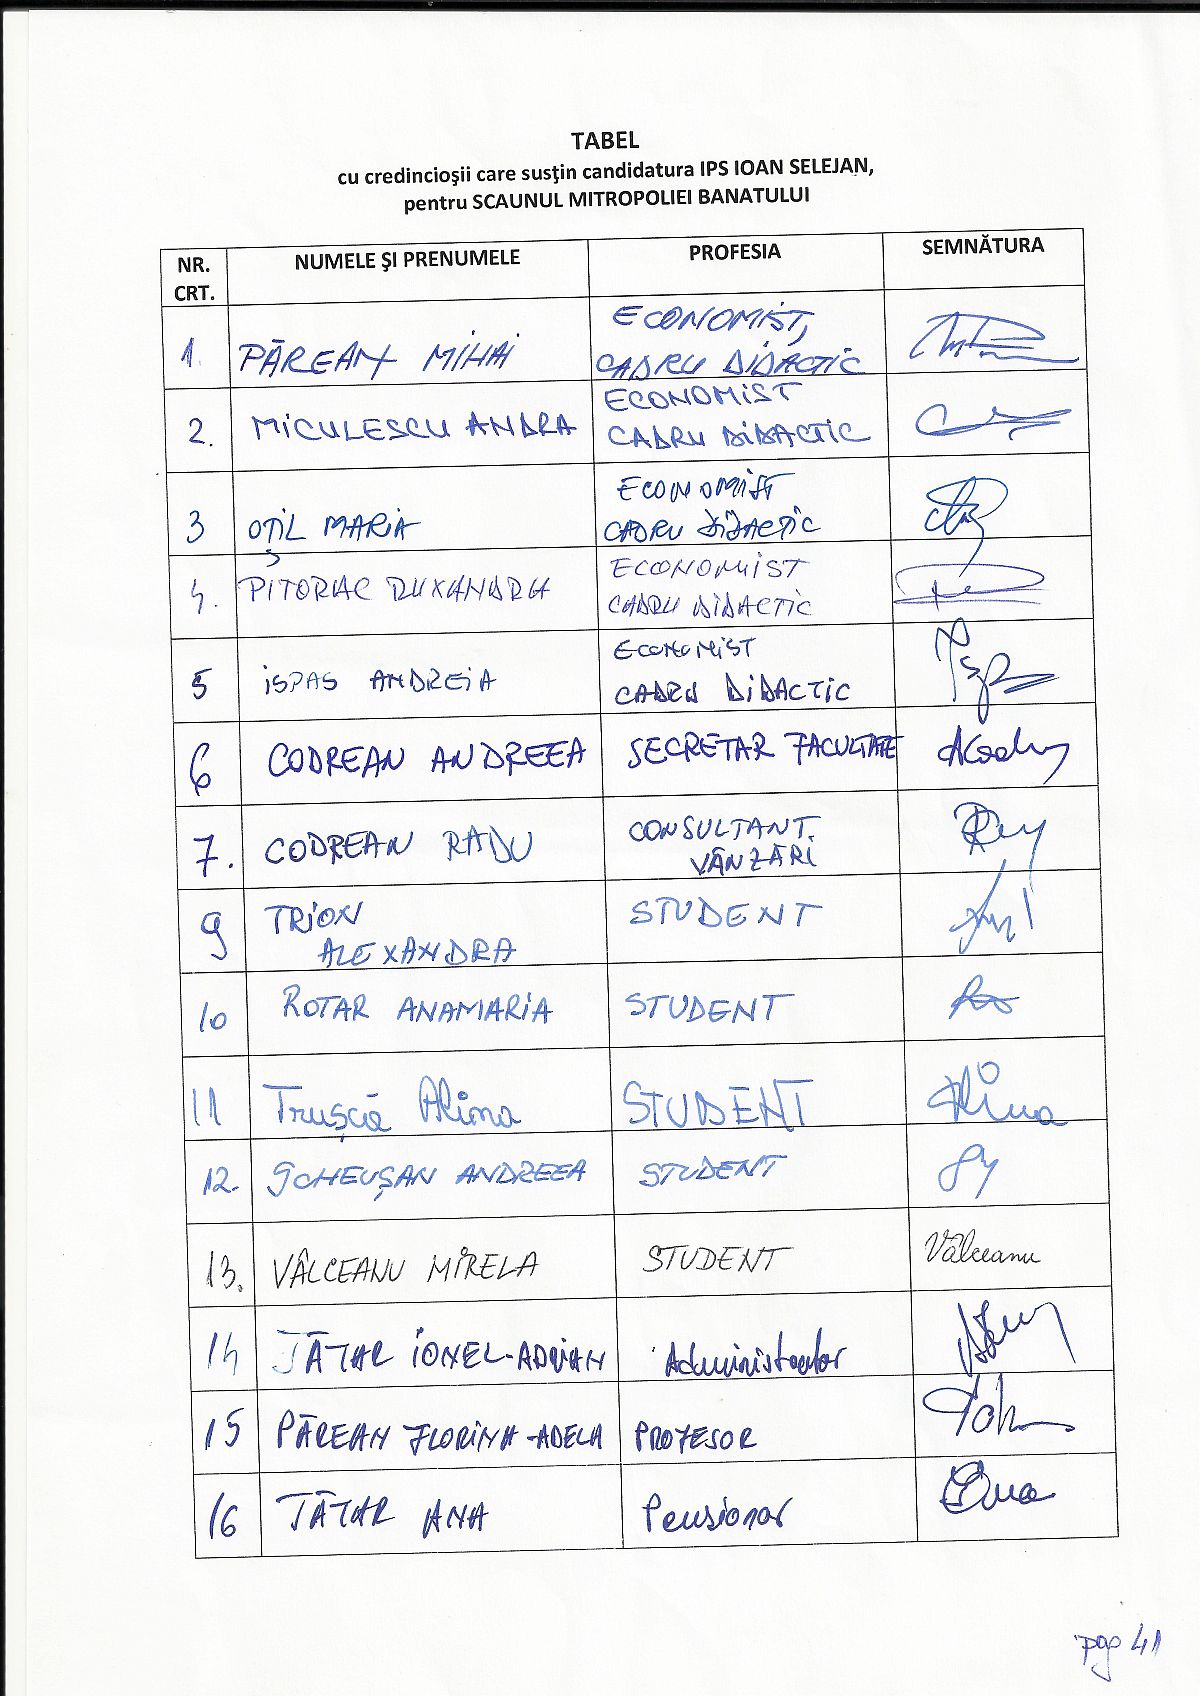 TABEL
cu credincioşii care susţin candidatura IPS IOAN SELEJAN,
pentru SCAUNUL MITROPOLIEI BANATULUI
NR. CRT. NUMELE ŞI PRENUMELE PROFESIA SEMNĂTURA
1. PĂREAN MIHAI ECONOMIST, CADRU DIDACTIC
2. MICULESCU ANDRA ECONOMIST CADRU DIDACTIC
3 OȚIL MARIA ECONOMIST CADRU DIDACTIC
4. PITORAC RUXANDRA ECONOMIST CADRU DIDACTIC
5 ISPAS ANDREIA ECONOMIST CADRU DIDACTIC
6 CODREAN ANDREEA SECRETAR FACULTATE
7. CODREAN RADU CONSULTANT VÂNZĂRI
9 TRION ALEXANDRA STUDENT
10 ROTAR ANAMARIA STUDENT
11 Trușcă Alina STUDENT Alina
12. GCHEUȘAN ANDREEA STUDENT
13. VÂLCEANU MIRELA STUDENT Vâlceanu
14 TĂTAR IONEL-ADRIAN Administrator
15 PĂREAN FLORINA-ADELA PROFESOR
16 TĂTAR ANA Pensionar
pag 41